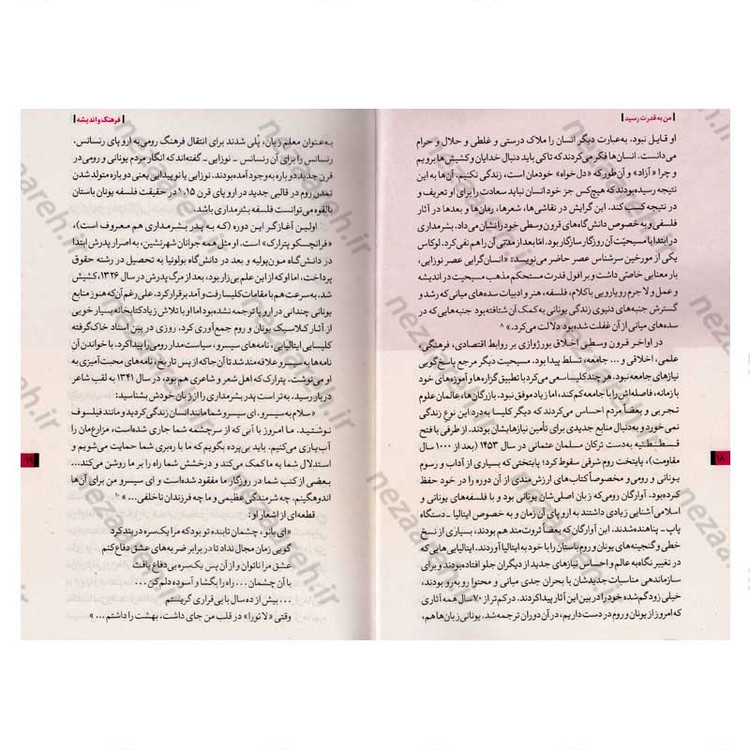 من به قدرت رسید
او قایل نبود. به‌عبارت دیگر انسان را ملاک درستی و غلطی و حلال و حرام
می‌دانست. انسان‌ها فکر می‌کردند که تاکی باید دنبال خدایان و کشیش‌ها برویم
و چرا «آزاد» و آن‌طور که «دل‌خواه» خودمان است، زندگی نکنیم. آن‌ها به این
نتیجه رسیده بودند که هیچ‌کس جز خود انسان نباید سعادت را برای او تعریف و
در نتیجه کسب کند. این گرایش در نقاشی‌ها، شعرها، رمان‌ها و بعدها در آثار
فلسفی و به خصوص دانش‌گاه‌های قرون وسطی خود را نشان می‌داد. بشرمداری
در ابتدا با مسیحیّت آن روزگار سازگار بود. امّا بعد از مدتی آن را نفی کرد. لوکاس
یکی از مورخین سرشناس عصر حاضر می‌نویسد: «انسان‌گرایی عصر نوزایی،
بار معنایی خاصّی داشت و بر افول قدرت مستحکم مذهب مسیحیت در اندیشه
و عمل و لاجرم رویارویی با کلام، فلسفه، هنر و ادبیات سده‌های میانی که رشد و
گسترش جنبه‌های دنیوی زندگی یونانی به کمک آن شتافته بود جنبه‌هایی که در
سده‌های میانی از آن غفلت شده بود دلالت می‌کرد.» ۸
در اواخر قرون وسطی اخلاق بورژوازی بر روابط اقتصادی، فرهنگی،
علمی، اخلاقی و ... جامعه، تسلط پیدا بود. مسیحیت دیگر مرجع پاسخ‌گویی
نیازهای جامعه نبود. هر چند کلیسا سعی می‌کرد با تطبیق گزاره‌ها و آموزه‌های خود
با زمانه، فاصله‌اش را با جامعه کم کند، اما زیاد موفق نبود. بازرگان‌ها، عالمان علوم
تجربی و بعضاً مردم احساس می‌کردند که دیگر کلیسا به‌درد این نوع زندگی
نمی‌خورد و به‌دنبال منابع جدیدی برای تأمین نیازهایشان بودند. از طرفی با فتح
قسطنطنیه به‌دست ترکان مسلمان عثمانی در سال ۱۴۵۳ (بعد از ۱۰۰۰ سال
مقاومت)، پایتخت روم شرقی سقوط کرد؛ پایتختی که بسیاری از آداب و رسوم
یونانی و رومی و مخصوصاً کتاب‌های ارزش‌مندی از آن دوره را در خود حفظ
کرده‌بود. آوارگان رومی که زبان اصلی‌شان یونانی بود و با فلسفه‌های یونانی و
اسلامی آشنایی زیادی داشتند به اروپای آن زمان و به خصوص ایتالیا ـ دستگاه
پاپ ـ پناهنده شدند. این آوارگان که بعضاً ثروت‌مند هم بودند، بسیاری از نسخ
خطی و گنجینه‌های یونان و روم باستان را با خود به ایتالیا آوردند. ایتالیایی‌هایی که
در تغییر نگاه به عالم و احساس نیازهای جدید از دیگران جلو افتاده بودند و برای
سازماندهی مناسبات جدیدشان با بحران جدی مبانی و محتوا رو به رو بودند،
خیلی زود گم‌شده خود را در بین این آثار پیدا کردند. در کم‌تر از ۷۰ سال همه آثاری
که امروز از یونان و روم در دست داریم، در آن دوران ترجمه شد. یونانی زبان‌ها هم،
۱۸
فرهنگ و اندیشه
به‌عنوان معلم زبان، پُلی شدند برای انتقال فرهنگ رومی به اروپای رنسانس.
رنسانس را برای آن رنسانس ـ نوزایی ـ گفته‌اند که انگار مردم یونانی و رومی در
قرن جدید دوباره به‌وجود آمده بودند. نوزایی یا نو پیدایی یعنی دوباره متولد شدن
تمدن روم در قالبی جدید در اروپای قرن ۱۵. در حقیقت فلسفه یونان باستان
بالقوه می‌توانست فلسفه بشرمداری باشد.
اولین آغازگر این دوره (که به پدر بشرمداری هم معروف است)،
«فرانچسکو پترارک» است. او مثل همه جوانان شهرنشین، به اصرار پدرش ابتدا
در دانش‌گاه مون‌پولیه و بعد در دانش‌گاه بولونیا به تحصیل در رشته حقوق
پرداخت، اما او که از این علم بی‌زار بود، بعد از مرگ پدرش در سال ۱۳۲۶، کشیش
شد. به سرعت هم با مقامات کلیسا رفت و آمد برقرار کرد. علی رغم آن‌که هنوز منابع
یونانی چندانی در اروپا ترجمه نشده بود اما او با تلاش زیاد کتابخانه بسیار خوبی
از آثار کلاسیک یونان و روم جمع‌آوری کرد. روزی در بین اسناد خاک‌گرفته
کلیسایی ایتالیایی، نامه‌های سیسرو، سیاست‌مدار رومی را پیدا کرد. با خواندن آن
نامه‌ها به سیسرو علاقه‌مند شد تا آن‌جا که از پس تاریخ، نامه‌های محبت‌آمیزی به
او می‌نوشت. پترارک که اهل شعر و شاعری هم بود، در سال ۱۳۴۱ به لقب شاعر
دربار رسید. به‌تر است پدر بشرمداری را از زبان خودش بشناسید:
«سلام به سیسرو. ای سیسرو شما مانند انسان زندگی کردید و مانند فیلسوف
نوشتید. ما امروز با آبی که از سرچشمه شما جاری شده‌است، مزارع‌مان را
آب‌یاری می‌کنیم. باید بی‌پرده بگویم که ما با رهبری شما حمایت می‌شویم و
استدلال شما به ما کمک می‌کند و درخشش شما راه را بر ما روشن می‌کند...
بعضی از کتب شما در روزگار ما مفقود شده‌است و ای سیسرو من برای آن‌ها
اندوهگینم. چه شرمندگی عظیمی و ما چه فرزندان ناخلفی... »
قطعه‌ای از اشعار او:
«ای بانو، چشمان تابنده تو بود که مرا یک‌سره در بند کرد
گویی زمان مجال نداد تا در برابر ضربه‌های عشق دفاع کنم
عشق مرا ناتوان و از آن پس یک‌سره بی دفاع یافت
با آن چشمان... راه را بگشا و آسوده دلم کن...
... بیش از ده سال با بی‌قراری گریستم
وقتی «لائورا» در قلب من جای داشت، بهشت را داشتم ... »
۱۹
nezaareh.ir